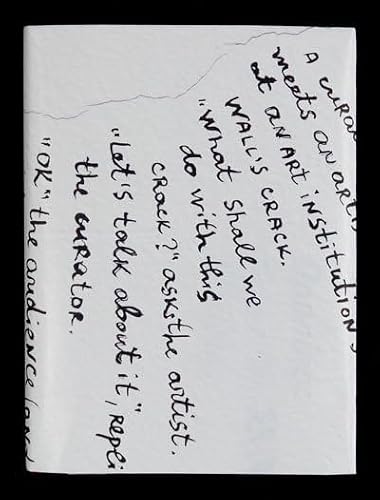 A
meets an
at AN ART institution
WALL'S CRACK.
"What shall we
do with this
crack?" asks the artist.
"Let's talk about it",
the curator.
"OK" the audience